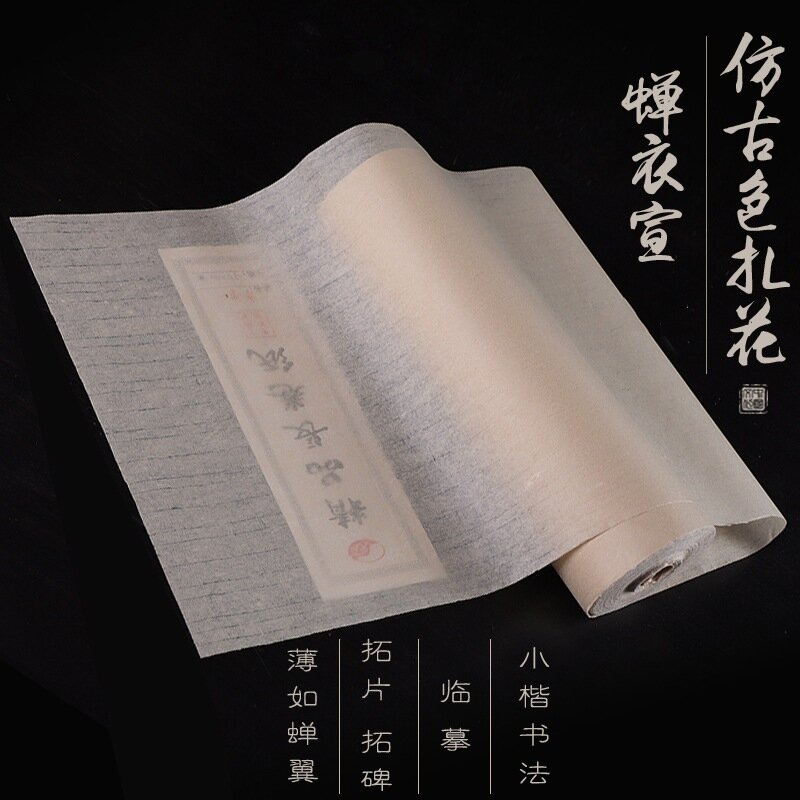 仿古色扎花
蝉衣宣
精品长卷纸
小楷书法
临摹
拓片 拓碑
薄如蝉翼